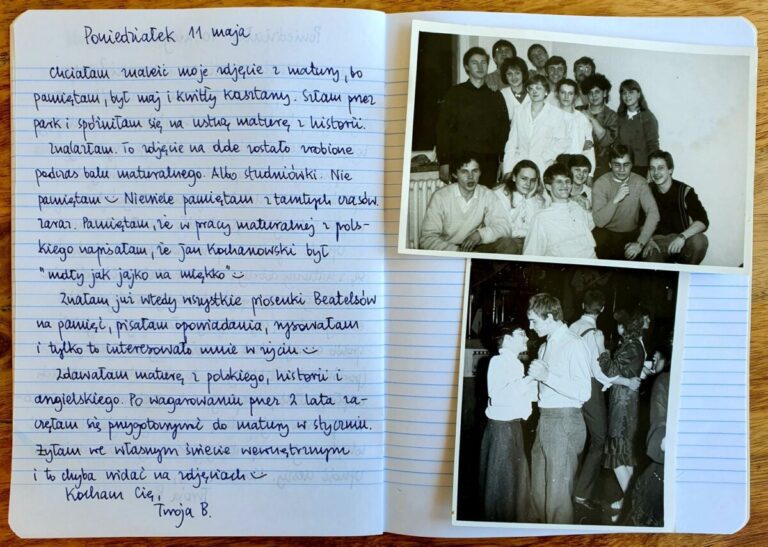 Poniedziałek 11 maja
Chciałam znaleźć moje zdjęcie z matury, bo
pamiętam, był maj i kwitły kasztany. Szłam przez
park i spóźniłam się na ustną maturę z historii.
Znalazłam. To zdjęcie na dole zostało zrobione
podczas balu maturalnego. Albo studniówki. Nie
pamiętam Niewiele pamiętam z tamtych czasów
zaraz. Pamiętam, że w pracy maturalnej z pols-
kiego napisałam, że Jan Kochanowski był
"mdły jak jajko na miękko"
Znałam już wtedy wszystkie piosenki Beatelsów
na pamięć, pisałam opowiadania, rysowałam
i tylko to interesowało mnie w życiu
Zdawałam maturę z polskiego, historii i
angielskiego. Po wagarowaniu przez 2 lata za-
częłam się przygotowywać do matury w styczniu.
Żyłam we własnym świecie wewnętrznym
i to chyba widać na zdjęciach
Kocham Cię,
Twoja B.